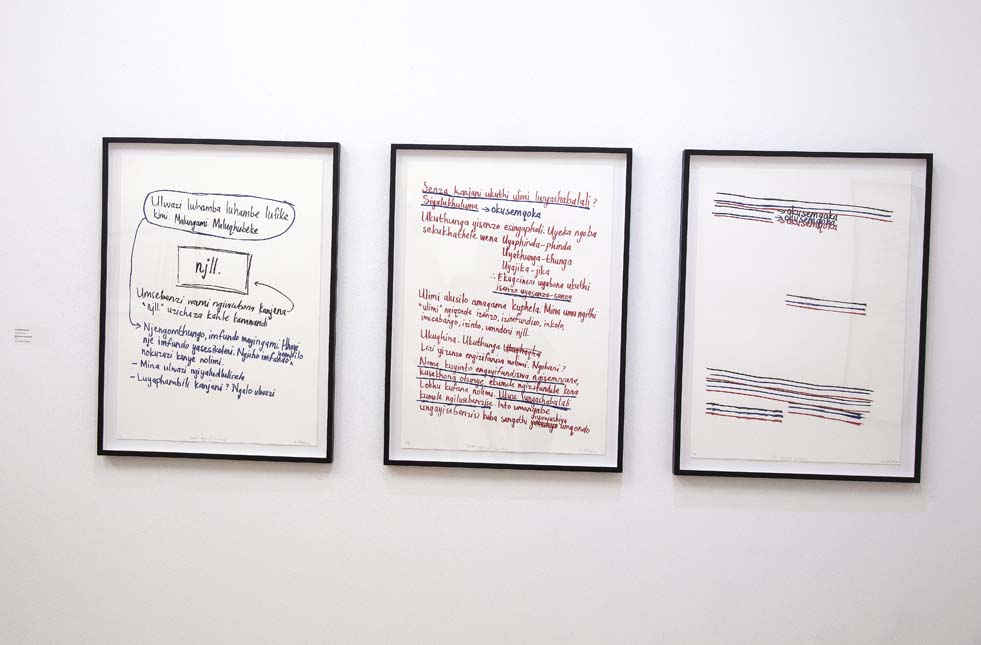 Ulwazi luhamba luhambe lufike
kimi. Malungami Maluqhubeke
njll.
Umsebenzi wami ngiwubona kanjena
"njll." uzichaza kahle kamnandi
Njengomthungo, imfundo mayingami. Hhayi
nje imfundo yasesikoleni. Ngisho imfundo yempilo
nokuzazi kanye nolimi.
- Mina ulwazi ngiyaludlulisela
- Luyaphambili kanjani? Ngelo ulwazi
Senza kanjani ukuthi ulimi lungashabalali?
Siyalukhuluma → okusemqoka
Ukuthunga yisenzo esingapheli. Uyeka ngoba
sekukhathele wena Ugaphinda-phinda
Uyathunga-thunga
Uyajika-jika
∴ Ekugcineni uyabona ukuthi
isenzo uyasenza-senza
Ulimi alusilo amagama kuphela. Mina uma ngithi
"ulimi" ngiqonde izenzo, izinfundiso, inkolo,
imicabango, izindo, umndeni njll.
Ukughina. Ukuthunga
Lezi yizenzo engizifanisa nolimi. Ngobani?
Noma kuyinto engayifundiswa ngisemncane,
kusekhona okunye ekumele ngizifundele kona
Lokhu kufana nolimi. Ukuze lungashabalali
kumele ngilusebenzise. Into umangabe
ungayisebenzisi kuba sengathi umqondo
→ okusemqoka
→ okusemqoka
→ okusemqoka